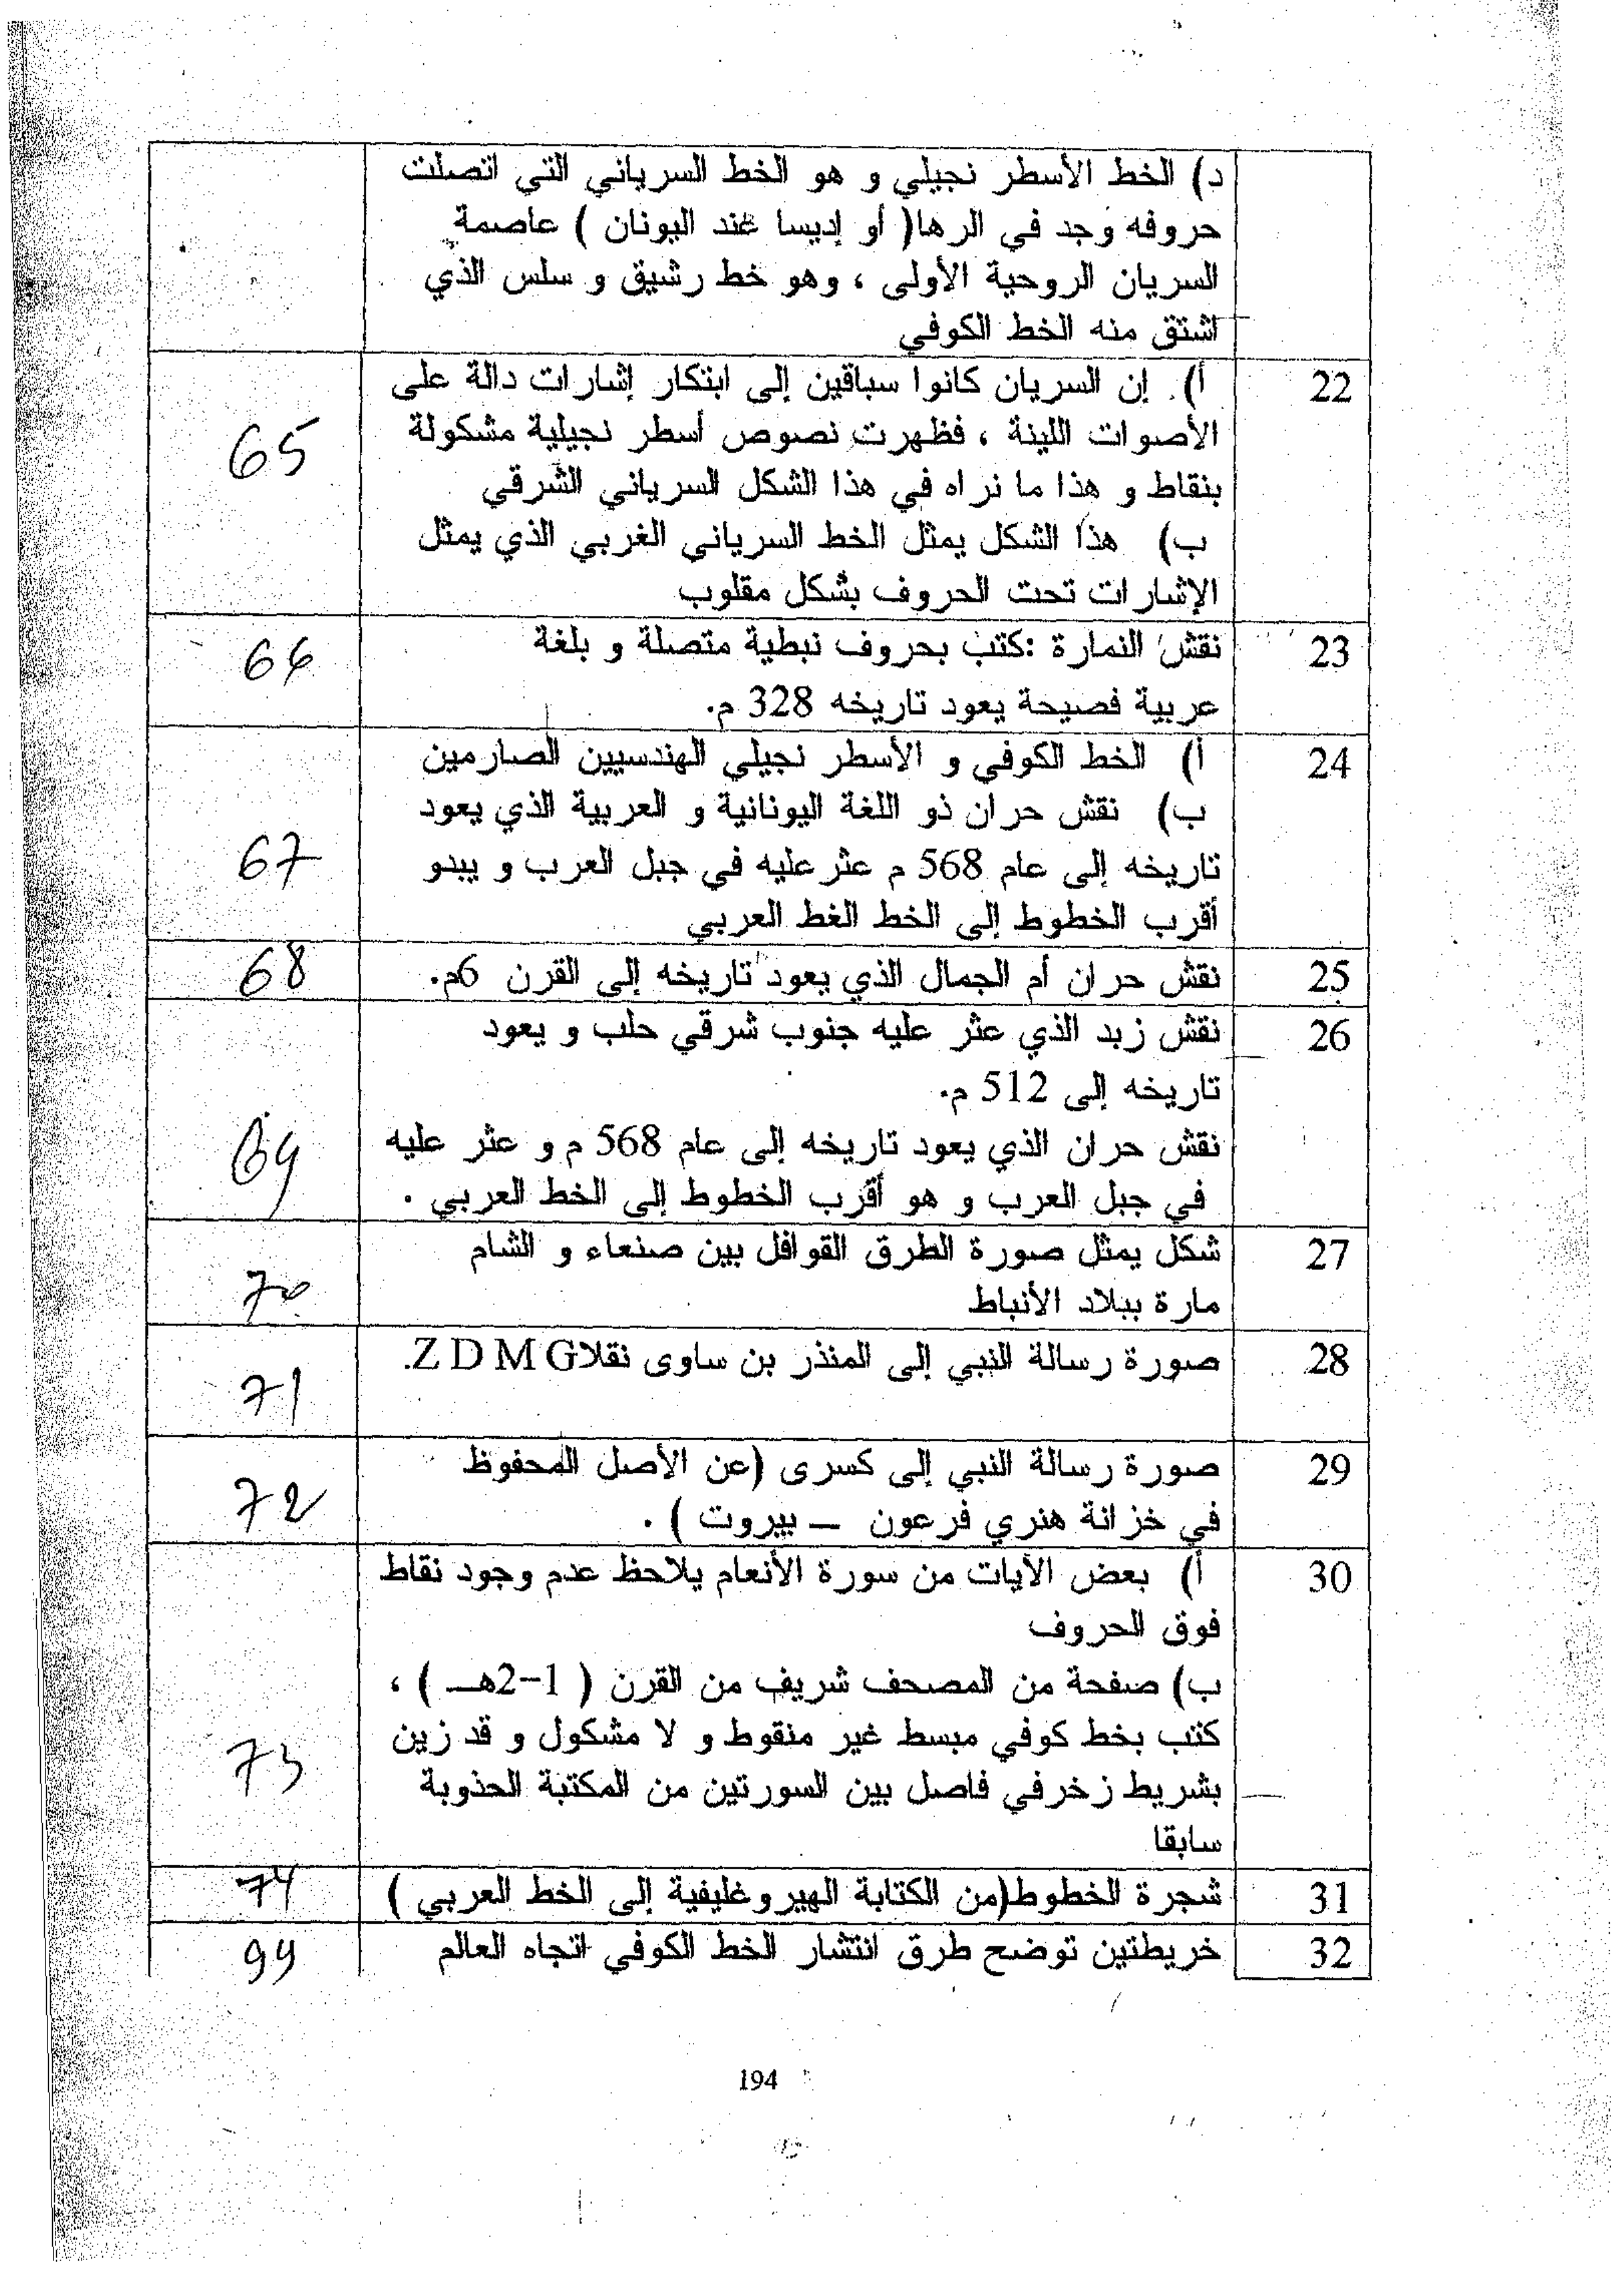 د) الخط الأسطر نجيلي و هو الخط السرياني التي اتصلت
حروفه وجد في الرها( أو إديسا عند اليونان ) عاصمة
السريان الروحية الأولى ، وهو خط رشيق و سلس الذي
اشتق منه الخط الكوفي
22 أ). إن السريان كانوا سباقين إلى ابتكار إشارات دالة على
الأصوات اللينة ، فظهرت نصوص أسطر نجيلية مشكولة 65
بنقاط و هذا ما نراه في هذا الشكل السرياني الشرقي
ب) هذا الشكل يمثل الخط السرياني الغربي الذي يمثل
الإشارات تحت الحروف بشكل مقلوب
23 نقش النمارة :كتب بحروف نبطية متصلة و بلغة 66
عربية فصيحة يعود تاريخه 328 م.
24 أ) الخط الكوفي و الأسطر نجيلي الهندسيين الصارمين
ب) نقش حران ذو اللغة اليونانية و العربية الذي يعود
تاريخه إلى عام 568 م عثر عليه في جبل العرب و يبدو 67
أقرب الخطوط إلى الخط الغط العربي
25 نقش حران أم الجمال الذي يعود تاريخه إلى القرن 6م. 68
26 نقش زبد الذي عثر عليه جنوب شرقي حلب و يعود
تاريخه إلى 512 م.
نقش حران الذي يعود تاريخه إلى عام 568 م و عثر عليه 69
في جبل العرب و هو أقرب الخطوط إلى الخط العربي .
27 شكل يمثل صورة الطرق القوافل بين صنعاء و الشام
مارة ببلاد الأنباط 70
28 صورة رسالة النبي إلى المنذر بن ساوى نقلاZ D M G. 71
29 صورة رسالة النبي إلى كسرى (عن الأصل المحفوظ
في خزانة هنري فرعون – بيروت ) . 72
30 أ) بعض الآيات من سورة الأنعام يلاحظ عدم وجود نقاط
فوق الحروف
ب) صفحة من المصحف شريف من القرن ( 1-2هـ ) ،
كتب بخط كوفي مبسط غير منقوط و لا مشكول و قد زين 73
بشريط زخرفي فاصل بين السورتين من المكتبة الحذوبة
سابقا
31 شجرة الخطوط(من الكتابة الهيروغليفية إلى الخط العربي ) 74
32 خريطتين توضح طرق انتشار الخط الكوفي اتجاه العالم 99
194